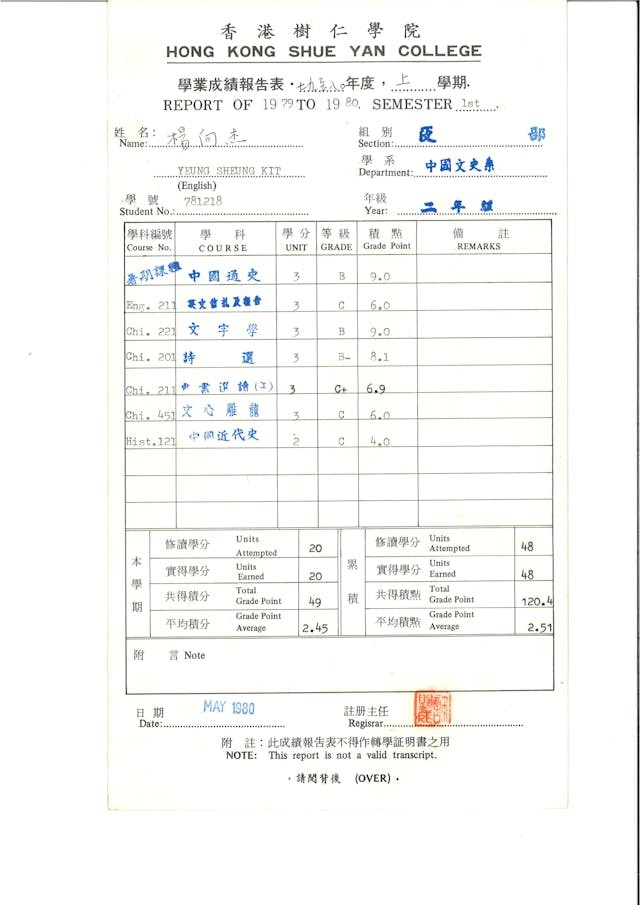 香港樹仁學院
HONG KONG SHUE YAN COLLEGE
學業成績報告表·七九至八〇年度，上學期.
REPORT OF 1979 TO 1980. SEMESTER 1st.
姓名: 楊向杰 組別 部
Name: Section:
YEUNG SHEUNG KIT 學系 中國文史系
(English) Department:
學號 781218 年級 二年級
Student No.: Year:
學科編號 學科 學分 等級 積點 備註
Course No. COURSE UNIT GRADE Grade Point REMARKS
暑期課程 中國通史 3 B 9.0
Eng. 211 英文信札及報告 3 C 6.0
Chi. 221 文字學 3 B 9.0
Chi. 201 詩選 3 B- 8.1
Chi. 211 選讀(I) 3 C+ 6.9
Chi. 451 文心雕龍 3 C 6.0
Hist.121 中國近代史 2 C 4.0
本學期 修讀學分 Units Attempted 20 累積 修讀學分 Units Attempted 48
實得學分 Units Earned 20 實得學分 Units Earned 48
共得積分 Total Grade Point 49 共得積點 Total Grade Point 120.4
平均積分 Grade Point Average 2.45 平均積點 Grade Point Average 2.51
附言 Note
日期 MAY 1980 註册主任
Date: Registrar
附註：此成績報告表不得作轉學証明書之用
NOTE: This report is not a valid transcript.
·請閱背後 (OVER)·